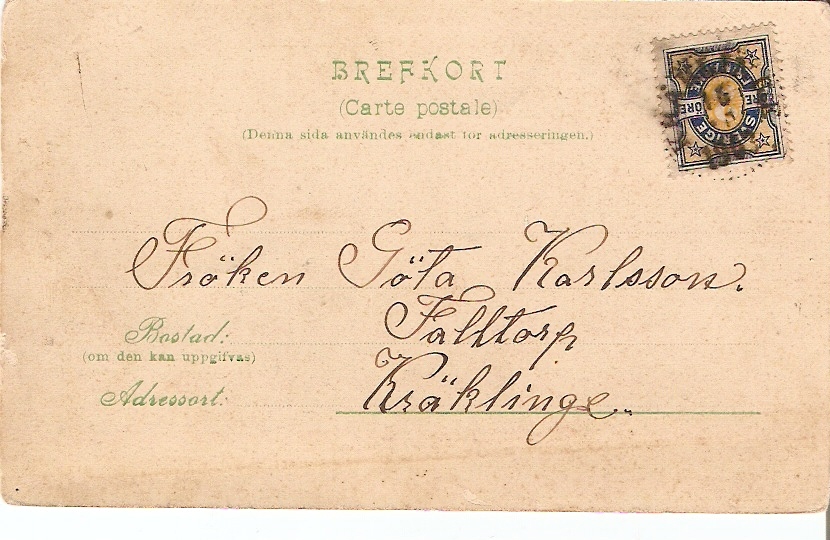 BREFKORT
(Carte postale)
(Denna sida användes endast för adresseringen.)
SVERIGE
ÖRE
Fröken Göta Karlsson.
Bostad: Falltorp
(om den kan uppgifvas)
Adressort: Kräklinge.